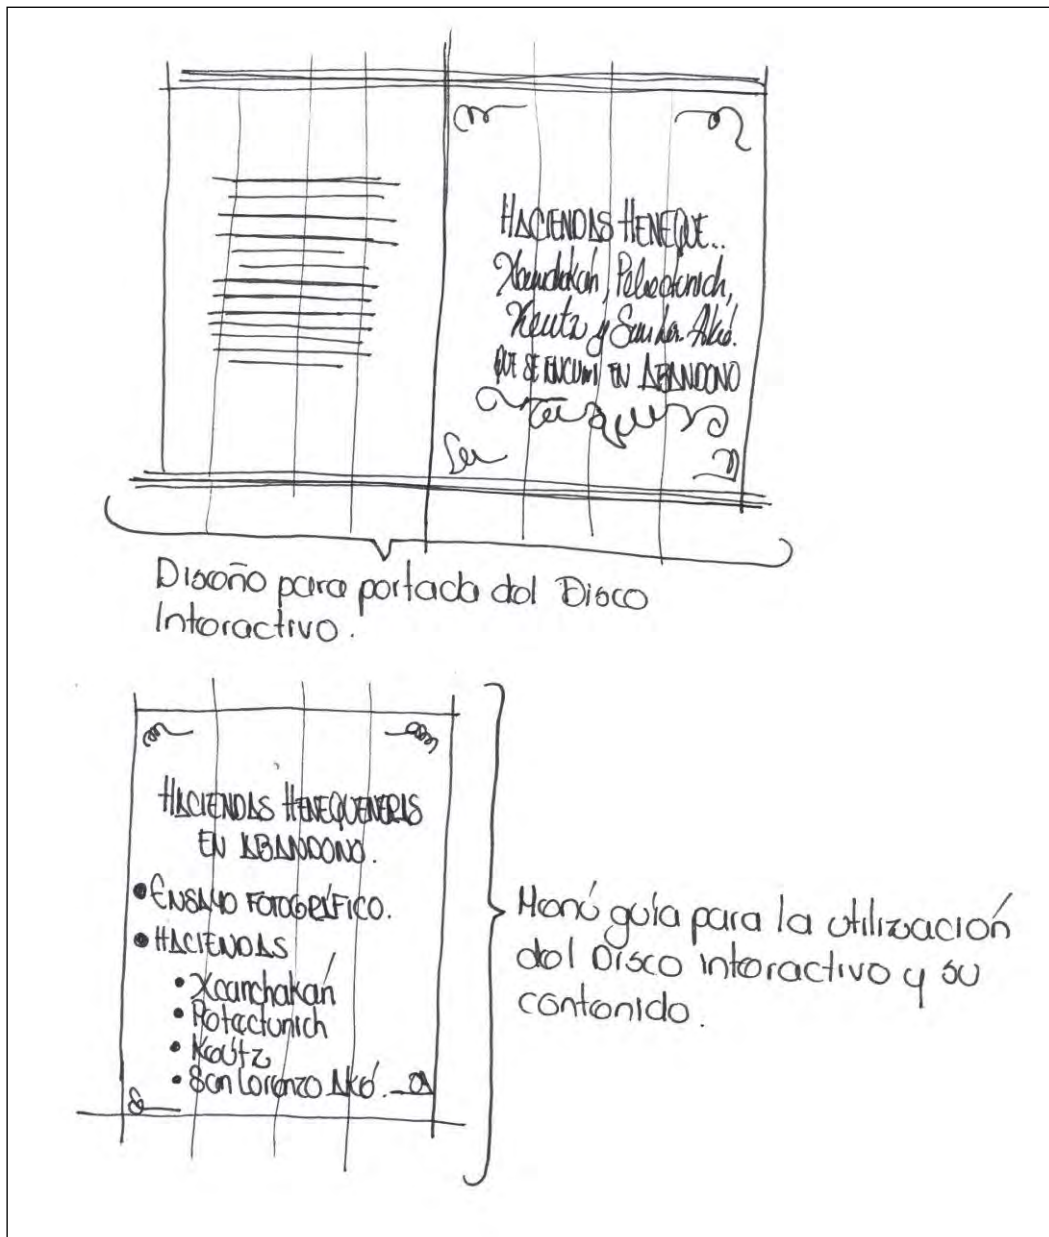 HACIENDAS HENEQUE...
Xcanchakán, Petectunich,
Keutz y San Lor. Akó.
QUE SE ENCUEN EN ABANDONO
Diseño para portada del Disco
Interactivo.
HACIENDAS HENEQUENERAS
EN ABANDONO.
• ENSAYO FOTOGRÁFICO.
• HACIENDAS
• Xcanchakán
• Petectunich
• Keútz
• San Lorenzo Akó.
Menú guía para la utilización
del Disco interactivo y su
contenido.